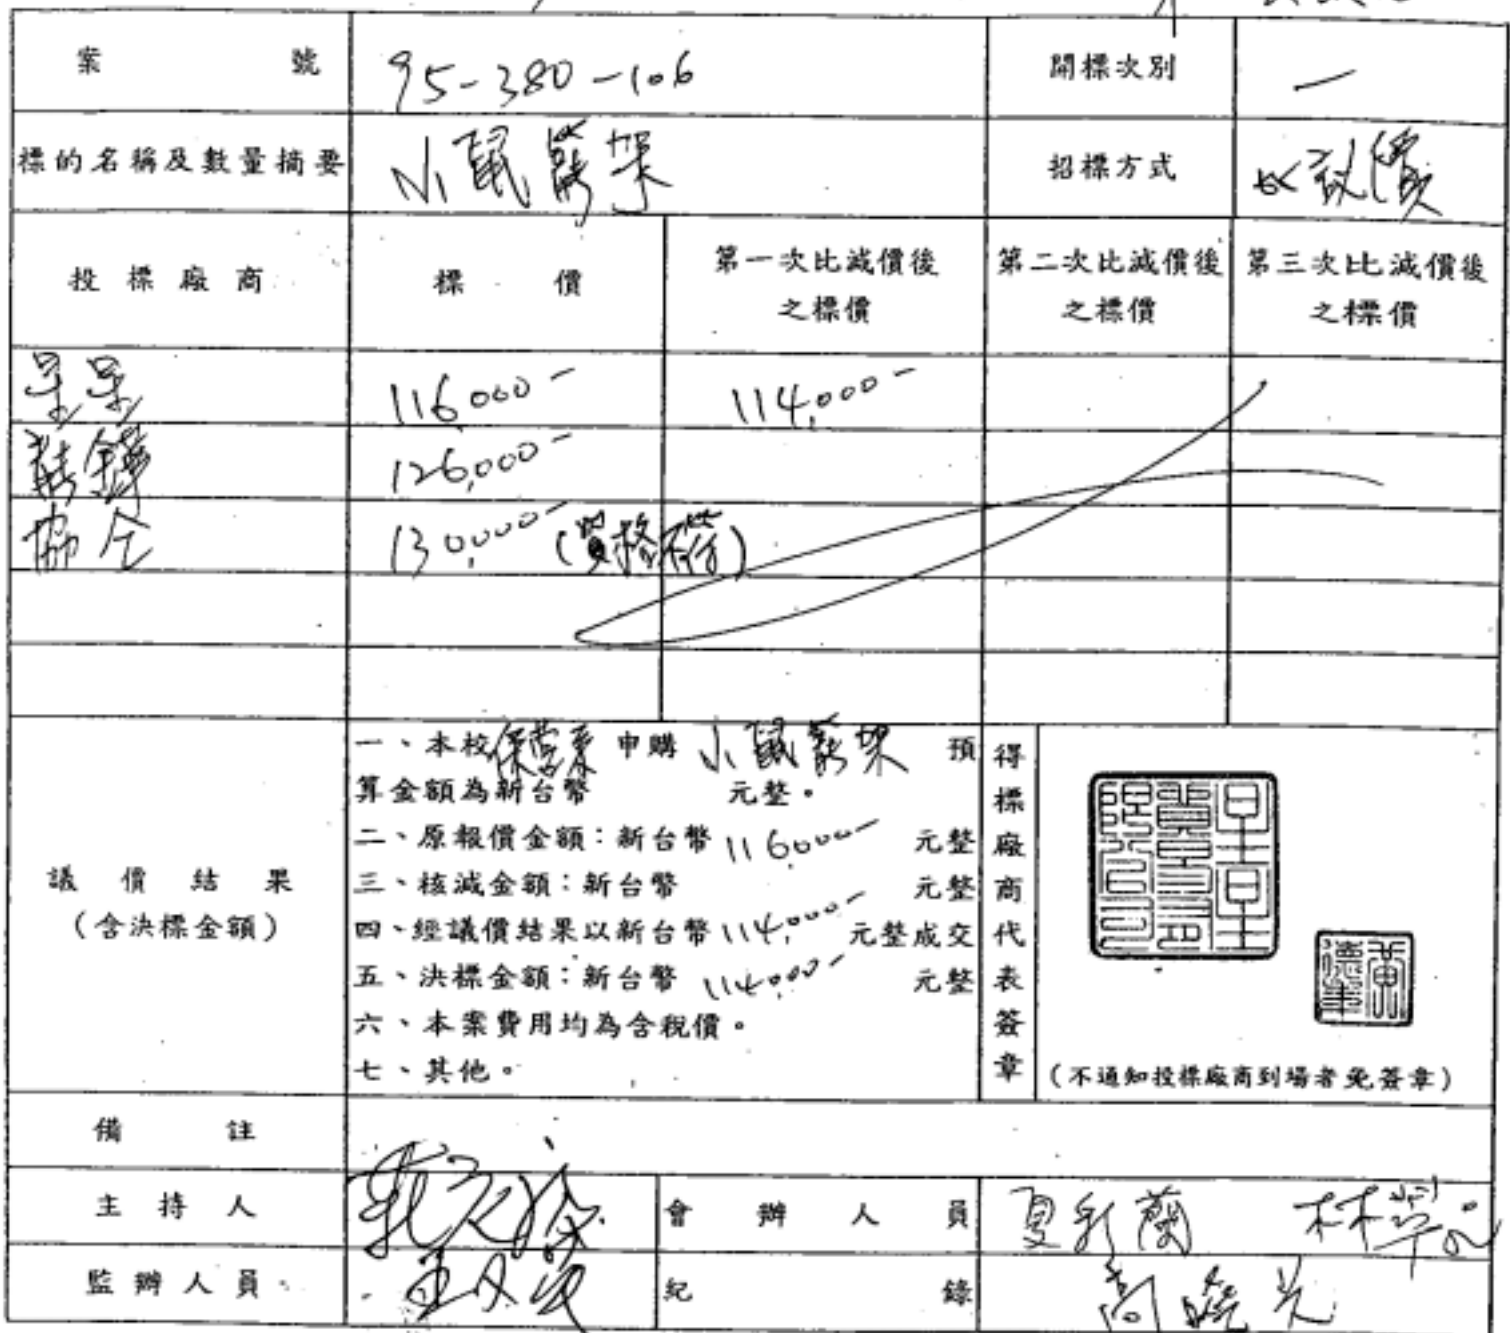 案 號 95-380-106 開標次別 一
標的名稱及數量摘要 小鼠籠架 招標方式 議價
投標廠商 標價 第一次比減價後之標價 第二次比減價後之標價 第三次比減價後之標價
116,000- 114,000-
126,000-
協全 130,000- (資格不符)
議價結果
(含決標金額)
一、本校 申購 小鼠籠架 預
算金額為新台幣 元整。
二、原報價金額:新台幣 116,000- 元整
三、核減金額:新台幣 元整
四、經議價結果以新台幣 114,000- 元整成交
五、決標金額:新台幣 114,000- 元整
六、本案費用均為含稅價。
七、其他。
得標廠商代表簽章
(不通知投標廠商到場者免簽章)
備 註
主 持 人 會 辦 人 員
監辦人員 紀 錄